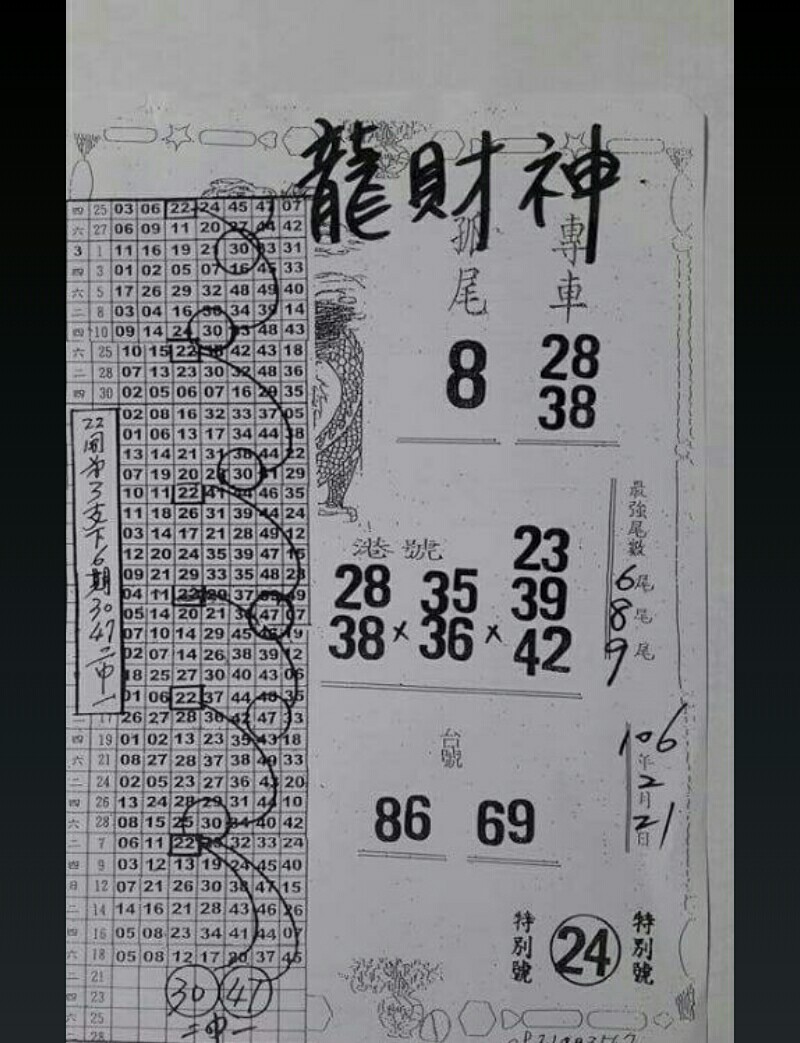 龍財神
孤尾
8
專車
28
38
港號
28 35 23
39
38 × 36 × 42
最強尾數
6尾
8尾
9尾
台號
86 69
106年2月21日
特別號
24
特別號
四 25 03 06 22 24 45 47 07
六 27 06 09 11 20 27 44 42
3 1 11 16 19 21 30 31
四 3 01 02 05 07 16 45 33
六 5 17 26 29 32 48 49 40
二 8 03 04 16 34 39 14
四 10 09 14 24 30 48 43
六 25 10 15 22 42 43 18
二 28 07 13 23 30 48 36
四 30 02 05 06 07 16 29 35
02 08 16 32 33 37 05
01 06 13 17 34 44
13 14 21 31 38 44 22
07 19 20 30 29
10 11 22 46 35
11 18 26 31 39 44 24
03 14 17 21 28 49 12
12 20 24 35 39 47
09 21 29 33 35 48
04 11 22 37 49
05 14 20 21 47
07 10 14 29 45 19
02 07 14 26 38 39 12
18 25 27 30 40 43 06
01 06 22 37 44
26 27 28 47
四 19 01 02 13 23 43 18
六 21 08 27 28 37 38 33
二 24 02 05 23 27 36 43 20
四 26 13 24 28 29 31 44 10
六 28 08 15 25 30 40 42
二 7 06 11 22 32 33 24
四 9 03 12 13 19 24 45 40
日 12 07 21 26 30 38 47 15
二 14 14 16 21 28 43 46 26
四 16 05 08 23 34 41 44 07
六 18 05 08 12 17 20 37 45
二 21
四 23
六 25
二 28
30 47
二中一
22開第3支下6期3047二中一